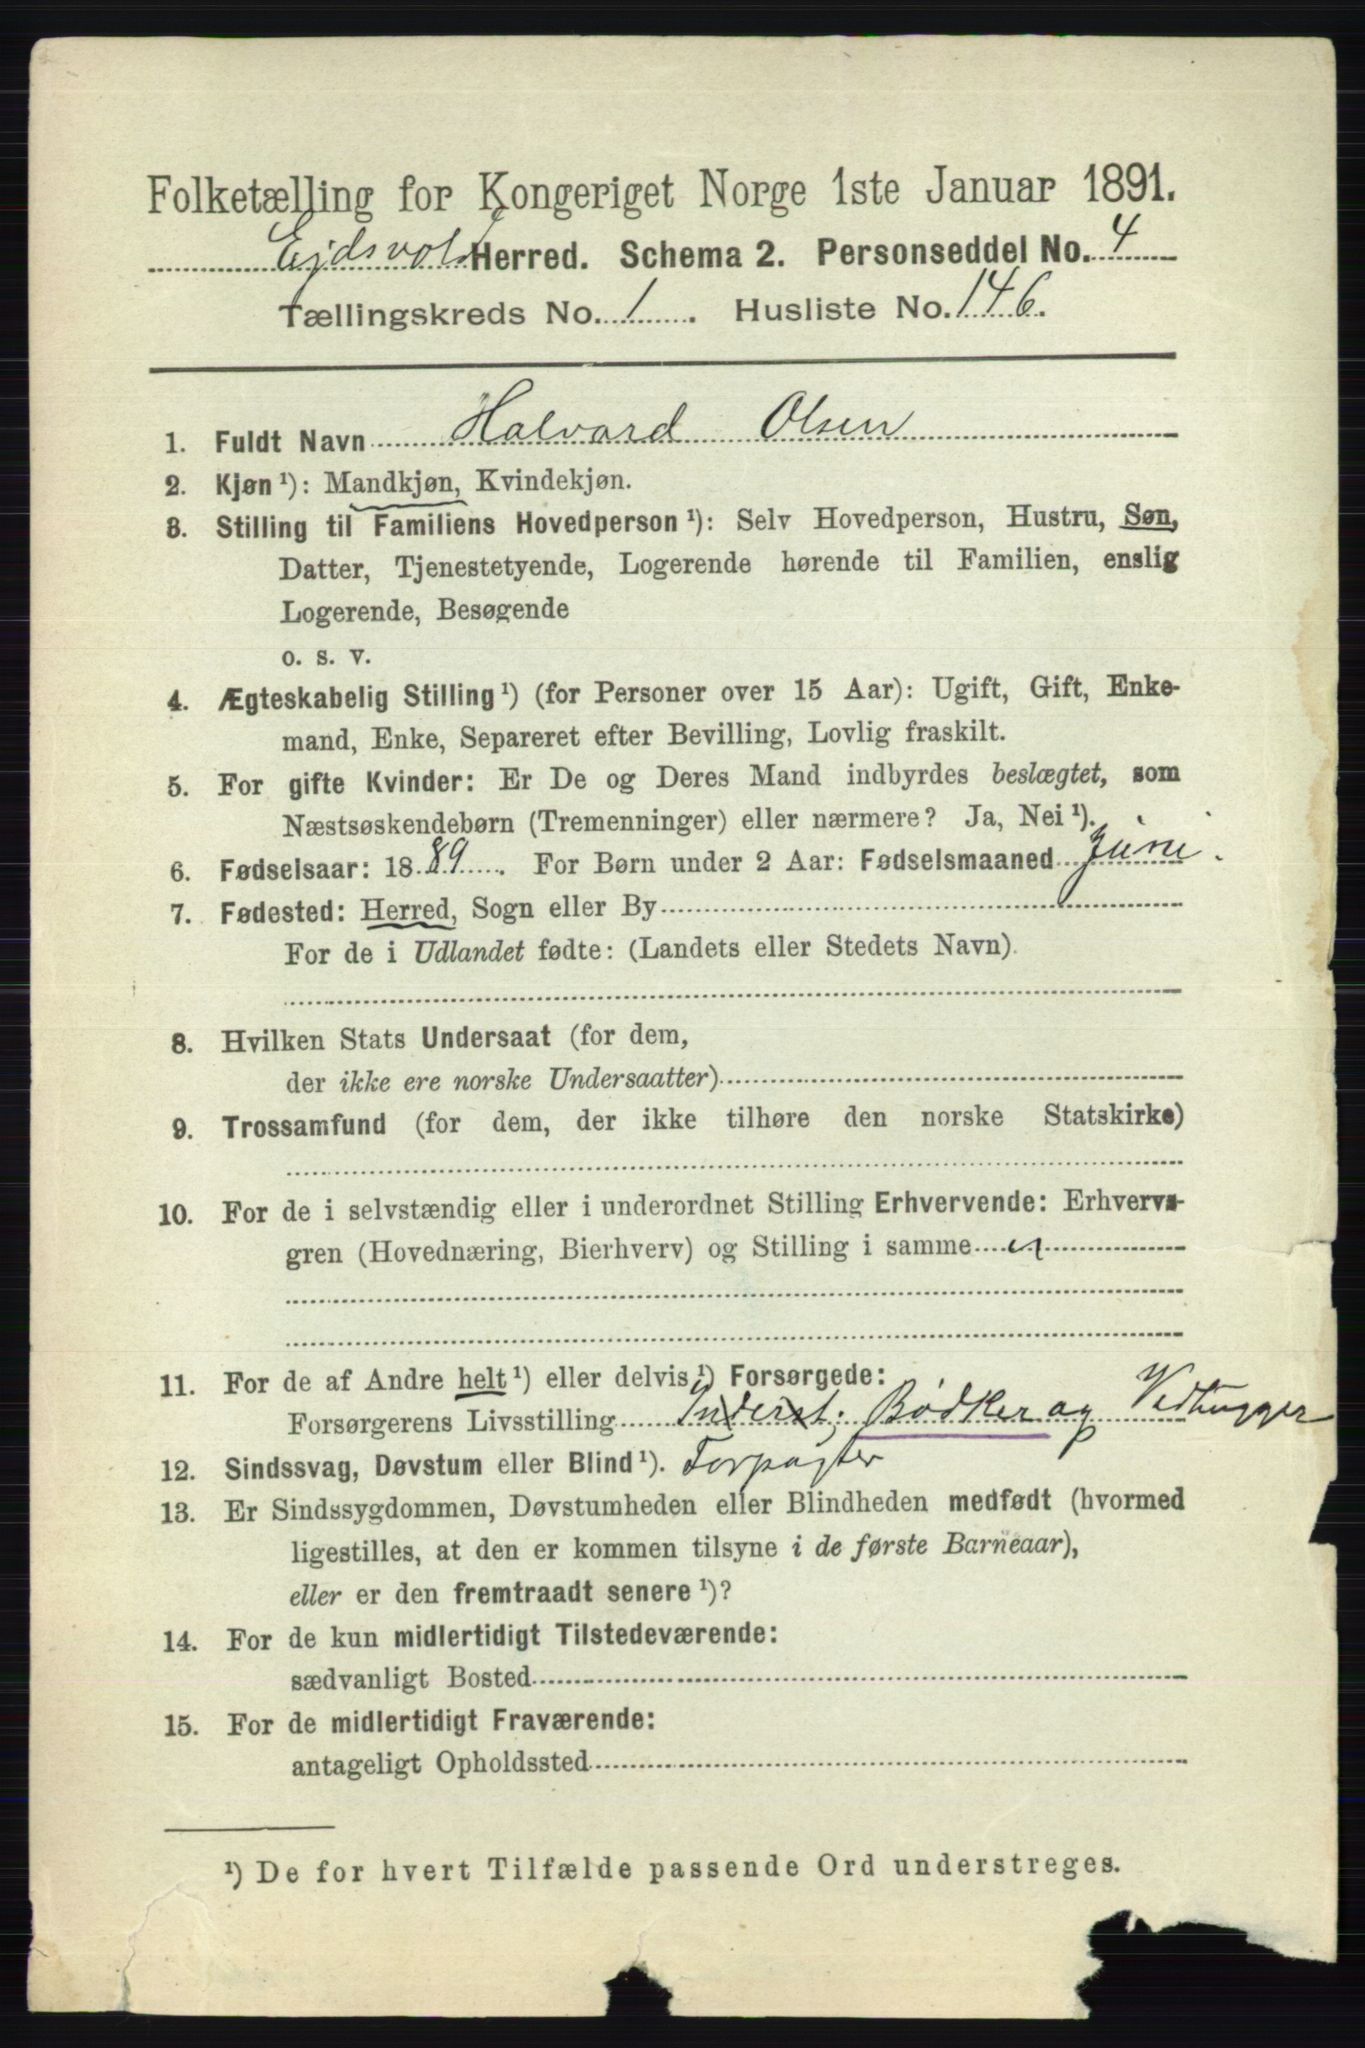 Folketælling for Kongeriget Norge 1ste Januar 1891.
Ejdsvold Herred. Schema 2. Personseddel No. 4
Tællingskreds No. 1. Husliste No. 146.
1. Fuldt Navn Halvard Olsen
2. Kjøn ¹): Mandkjøn, Kvindekjøn.
3. Stilling til Familiens Hovedperson ¹): Selv Hovedperson, Hustru, Søn,
Datter, Tjenestetyende, Logerende hørende til Familien, enslig
Logerende, Besøgende
o. s. v.
4. Ægteskabelig Stilling ¹) (for Personer over 15 Aar): Ugift, Gift, Enke-
mand, Enke, Separeret efter Bevilling, Lovlig fraskilt.
5. For gifte Kvinder: Er De og Deres Mand indbyrdes beslægtet, som
Næstsøskendebørn (Tremenninger) eller nærmere? Ja, Nei ¹).
6. Fødselsaar: 1889. For Børn under 2 Aar: Fødselsmaaned Juni.
7. Fødested: Herred, Sogn eller By
For de i Udlandet fødte: (Landets eller Stedets Navn)
8. Hvilken Stats Undersaat (for dem,
der ikke ere norske Undersaatter)
9. Trossamfund (for dem, der ikke tilhøre den norske Statskirke)
10. For de i selvstændig eller i underordnet Stilling Erhvervende: Erhvervs-
gren (Hovednæring, Bierhverv) og Stilling i samme
11. For de af Andre helt ¹) eller delvis ¹) Forsørgede:
Forsørgerens Livsstilling Inderst; Bødker og Vedhugger
12. Sindssvag, Døvstum eller Blind ¹). Forpagter
13. Er Sindssygdommen, Døvstumheden eller Blindheden medfødt (hvormed
ligestilles, at den er kommen tilsyne i de første Barneaar),
eller er den fremtraadt senere ¹)?
14. For de kun midlertidigt Tilstedeværende:
sædvanligt Bosted
15. For de midlertidigt Fraværende:
antageligt Opholdssted
¹) De for hvert Tilfælde passende Ord understreges.